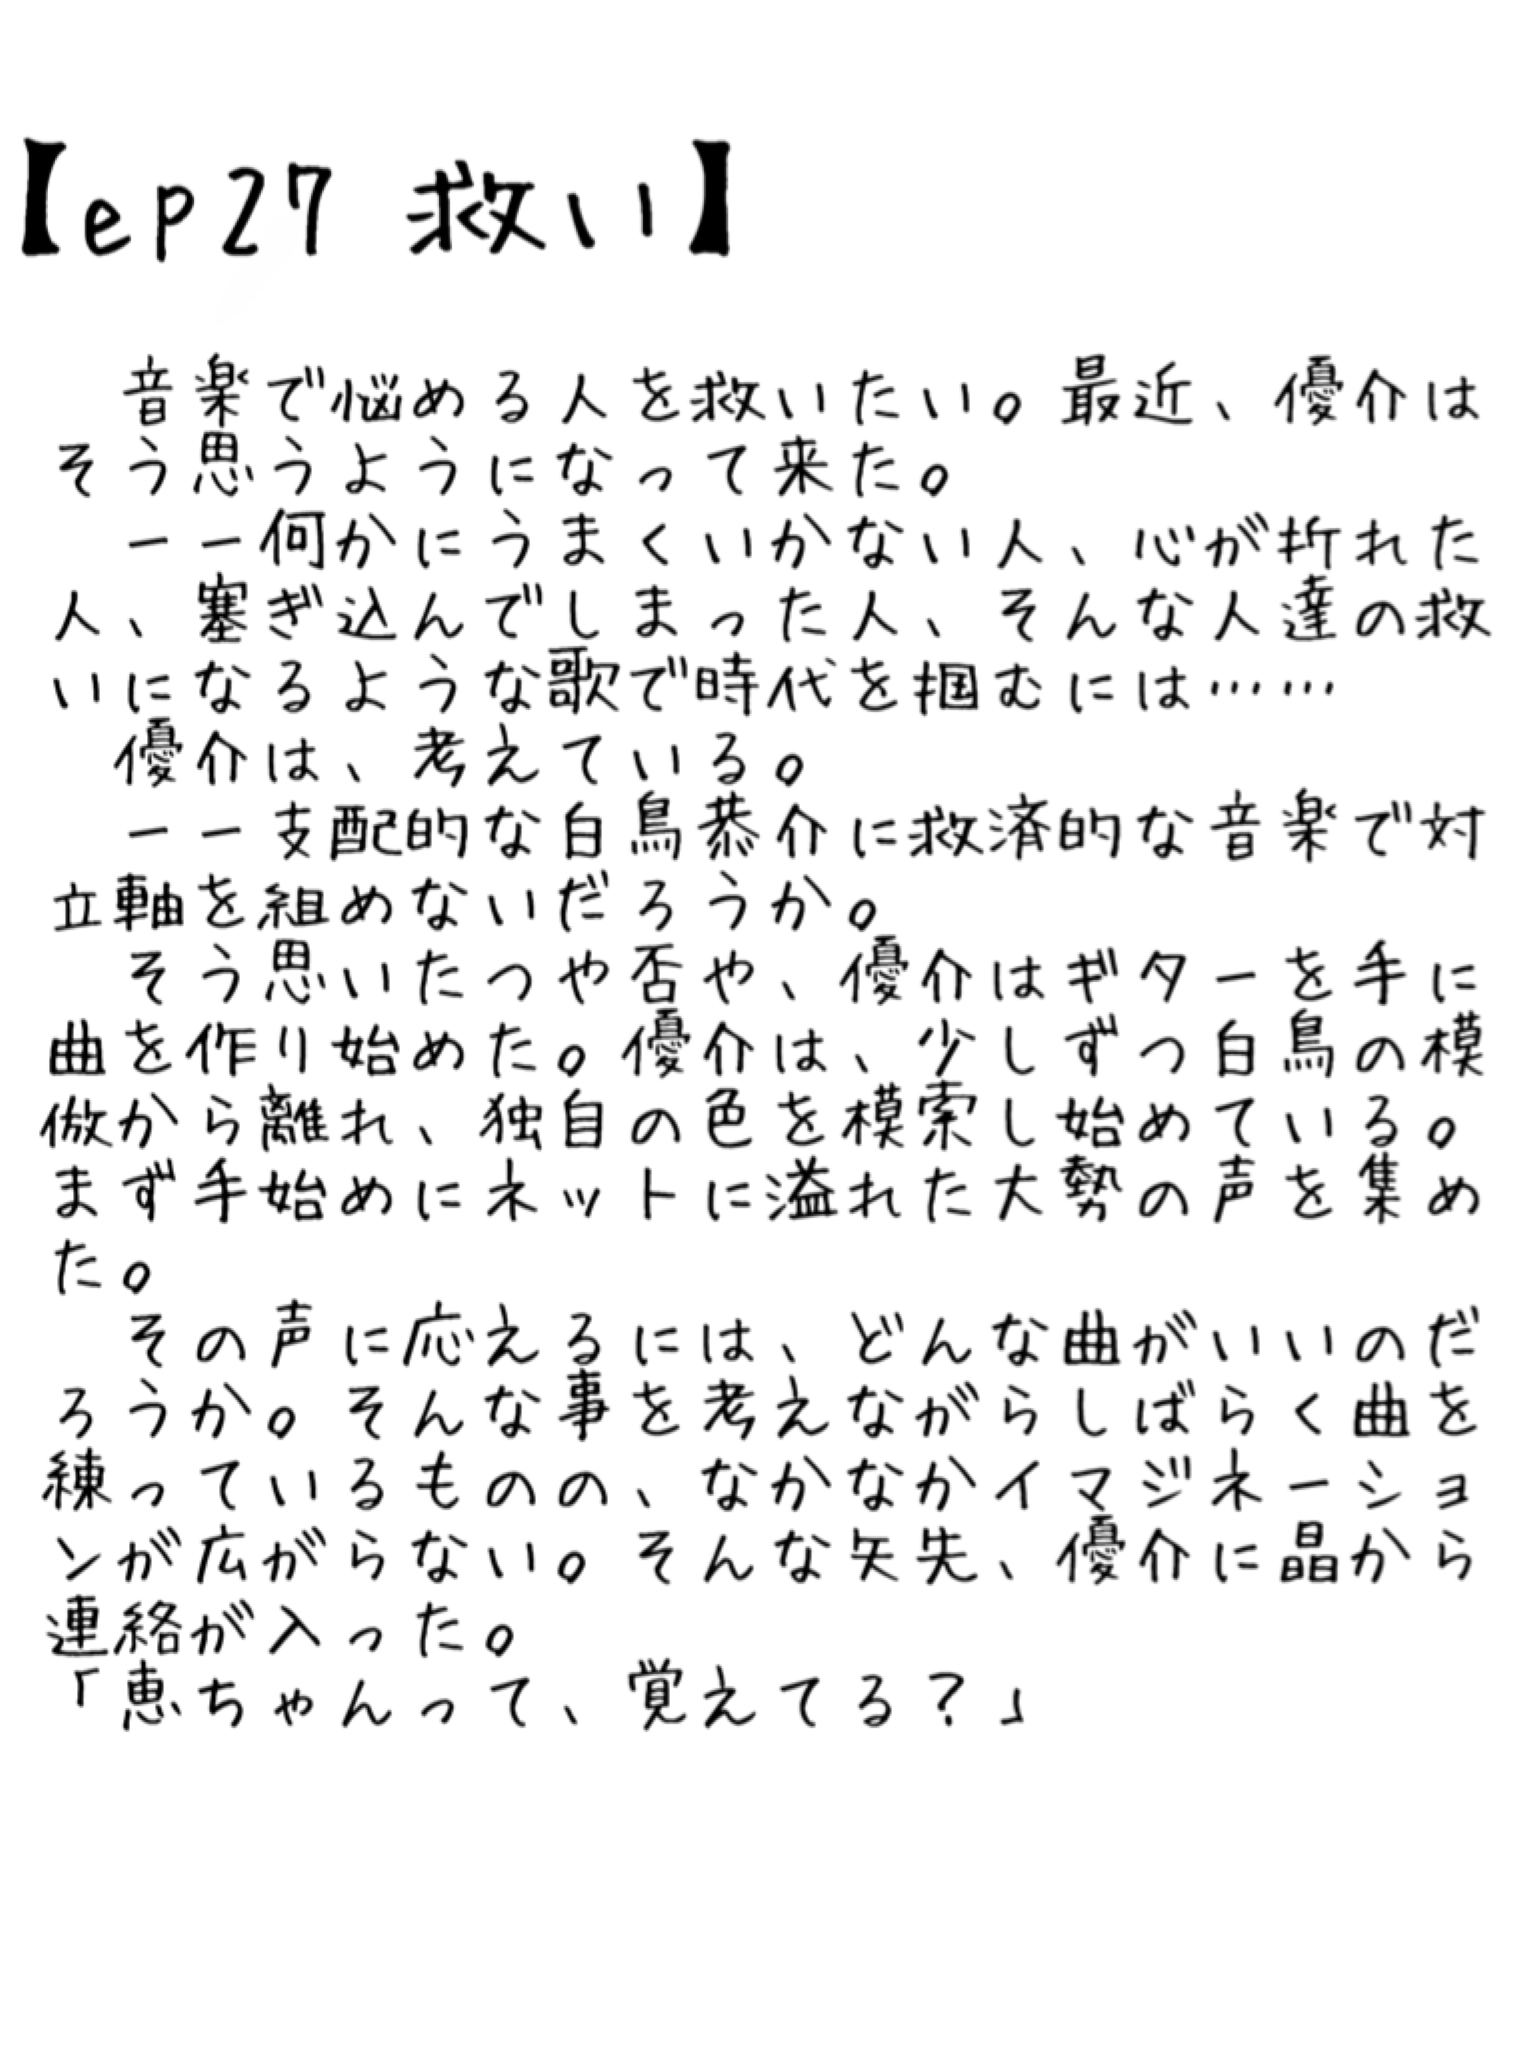 【ep27 救い】
音楽で悩める人を救いたい。最近、優介は
そう思うようになって来た。
ーー何かにうまくいかない人、心が折れた
人、塞ぎ込んでしまった人、そんな人達の救
いになるような歌で時代を掴むには……
優介は、考えている。
ーー支配的な白鳥恭介に救済的な音楽で対
立軸を組めないだろうか。
そう思いたつや否や、優介はギターを手に
曲を作り始めた。優介は、少しずつ白鳥の模
倣から離れ、独自の色を模索し始めている。
まず手始めにネットに溢れた大勢の声を集め
た。
その声に応えるには、どんな曲がいいのだ
ろうか。そんな事を考えながらしばらく曲を
練っているものの、なかなかイマジネーショ
ンが広がらない。そんな矢先、優介に晶から
連絡が入った。
「恵ちゃんって、覚えてる？」